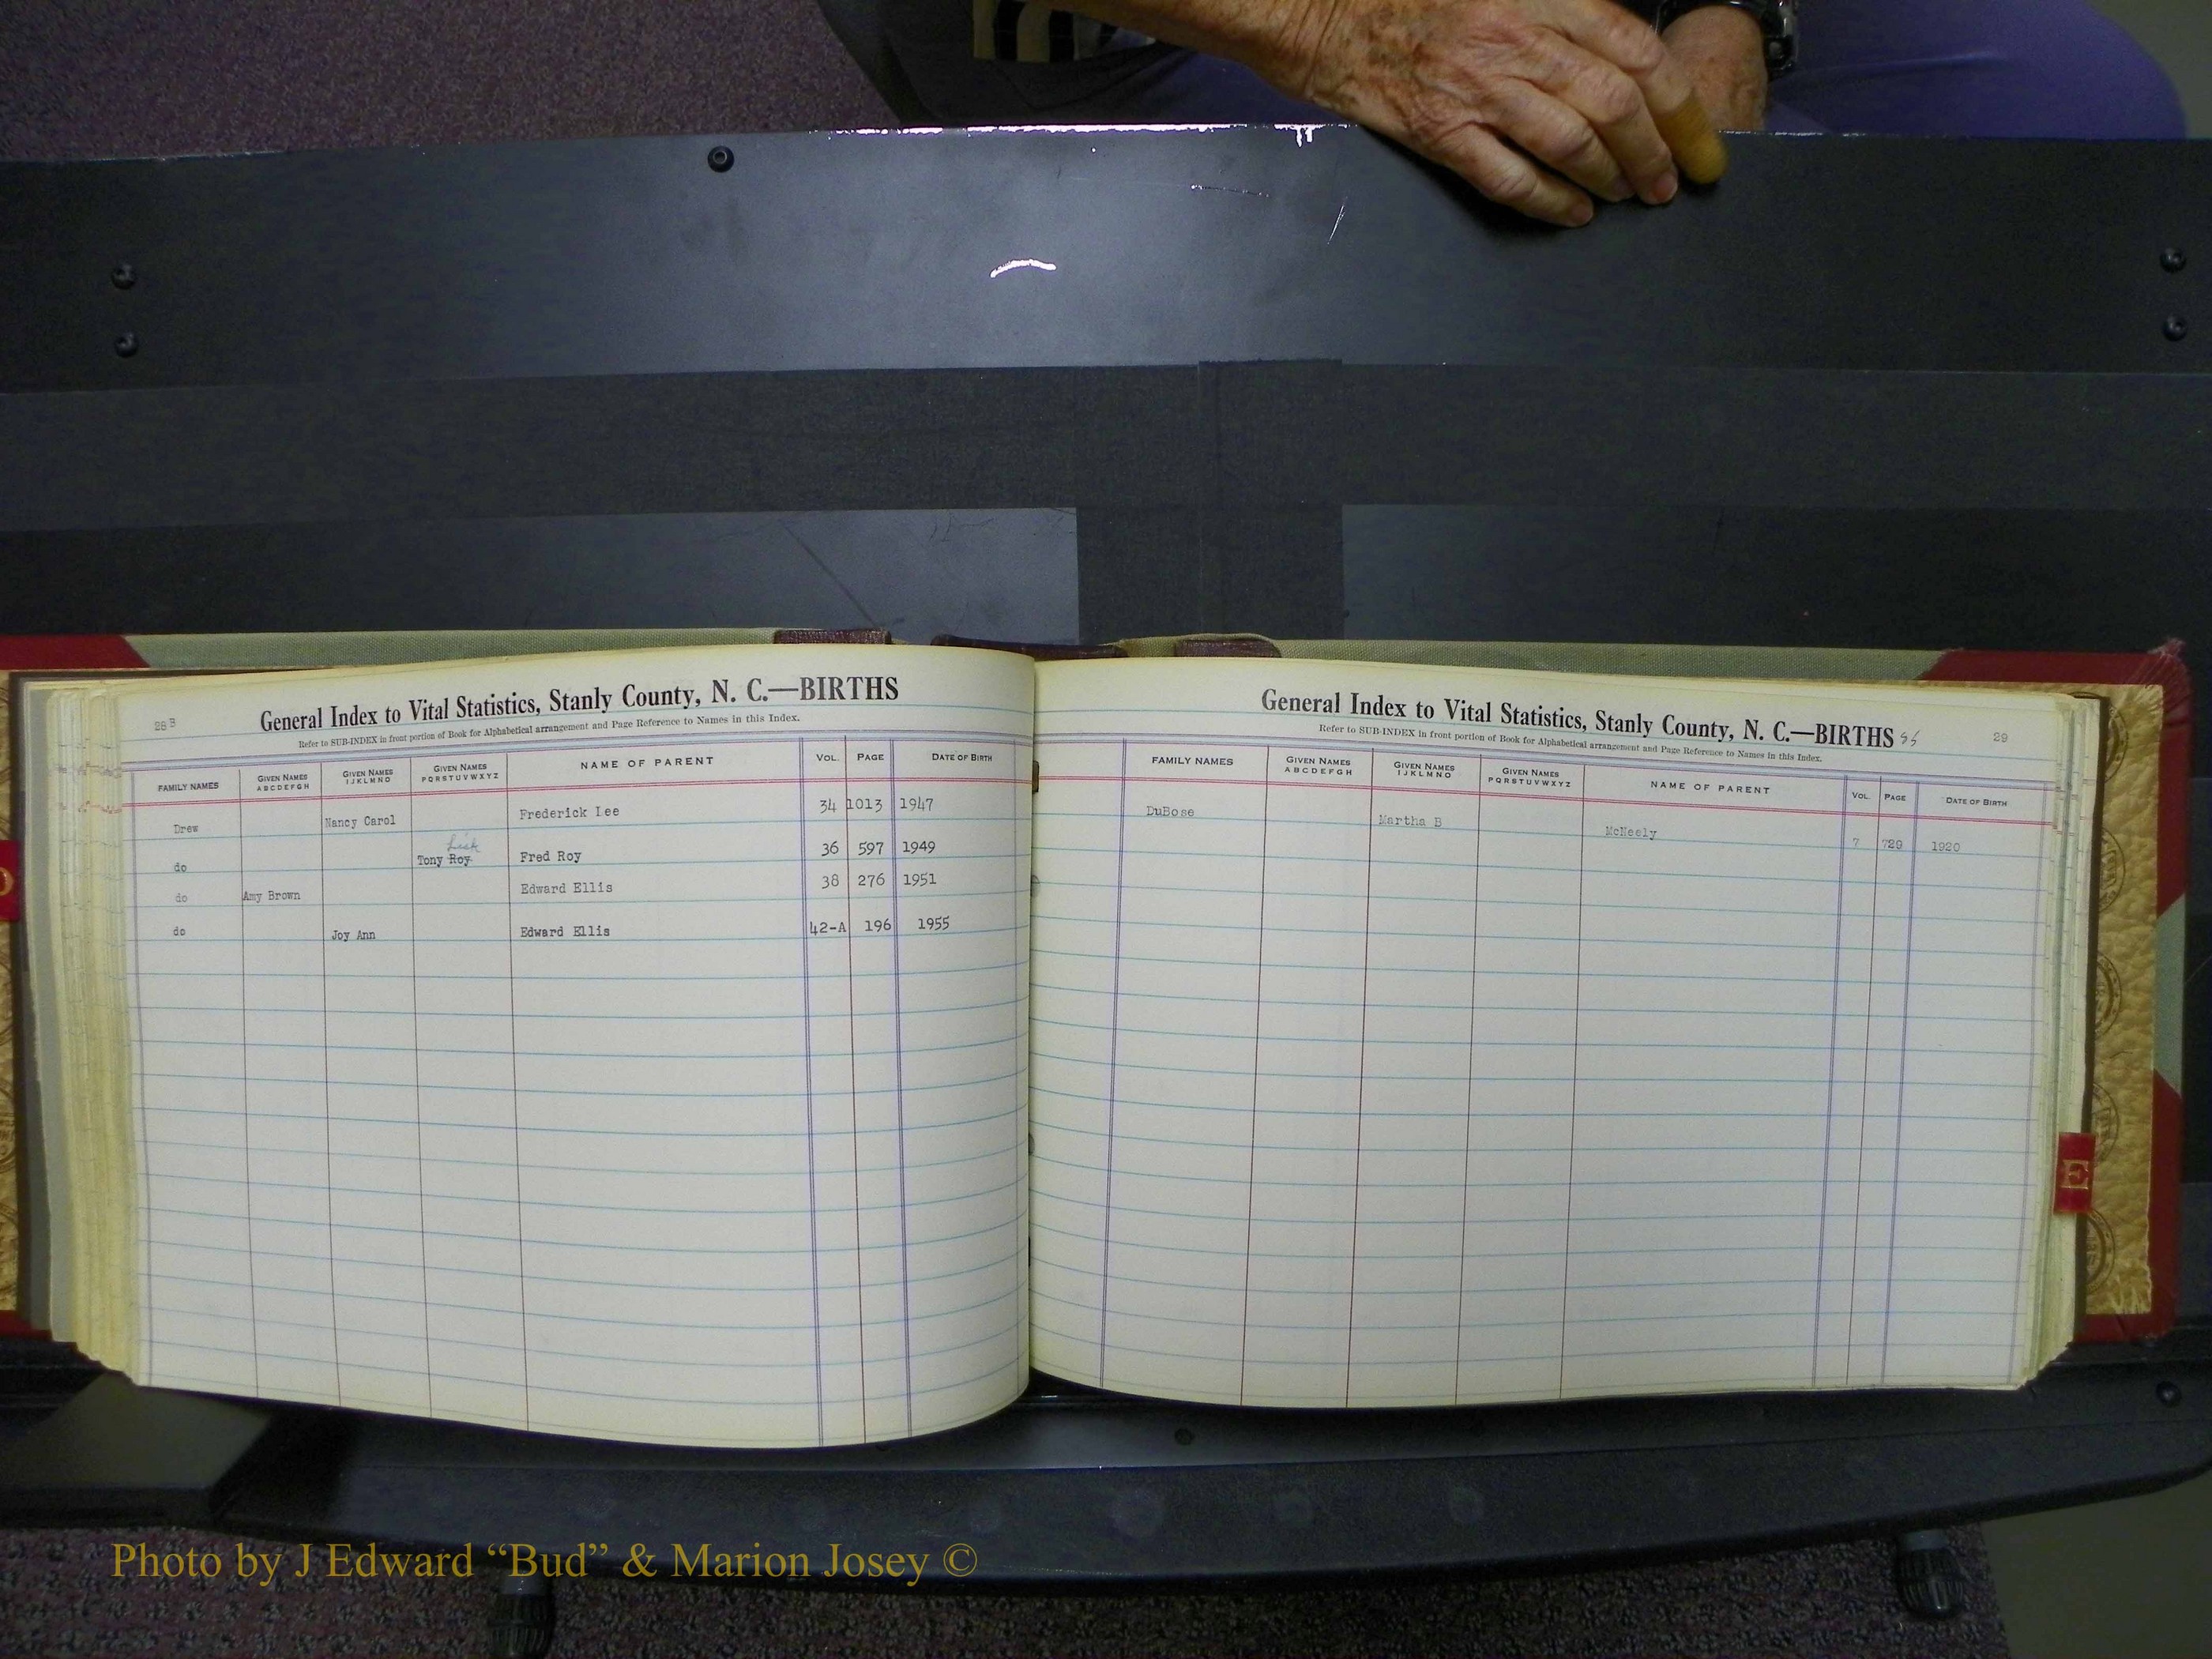 28 B
General Index to Vital Statistics, Stanly County, N. C.—BIRTHS
Refer to SUB-INDEX in front portion of Book for Alphabetical arrangement and Page Reference to Names in this Index.
FAMILY NAMES GIVEN NAMES ABCDEFGH GIVEN NAMES IJKLMNO GIVEN NAMES PQRSTUVWXYZ NAME OF PARENT VOL. PAGE DATE OF BIRTH
Drew Nancy Carol Frederick Lee 34 1013 1947
do Tony Roy Fred Roy 36 597 1949
do Amy Brown Edward Ellis 38 276 1951
do Joy Ann Edward Ellis 42-A 196 1955
General Index to Vital Statistics, Stanly County, N. C.—BIRTHS
29
Refer to SUB-INDEX in front portion of Book for Alphabetical arrangement and Page Reference to Names in this Index.
FAMILY NAMES GIVEN NAMES ABCDEFGH GIVEN NAMES IJKLMNO GIVEN NAMES PQRSTUVWXYZ NAME OF PARENT VOL. PAGE DATE OF BIRTH
DuBose Martha B McNeely 7 729 1920
E
Photo by J Edward “Bud” & Marion Josey ©